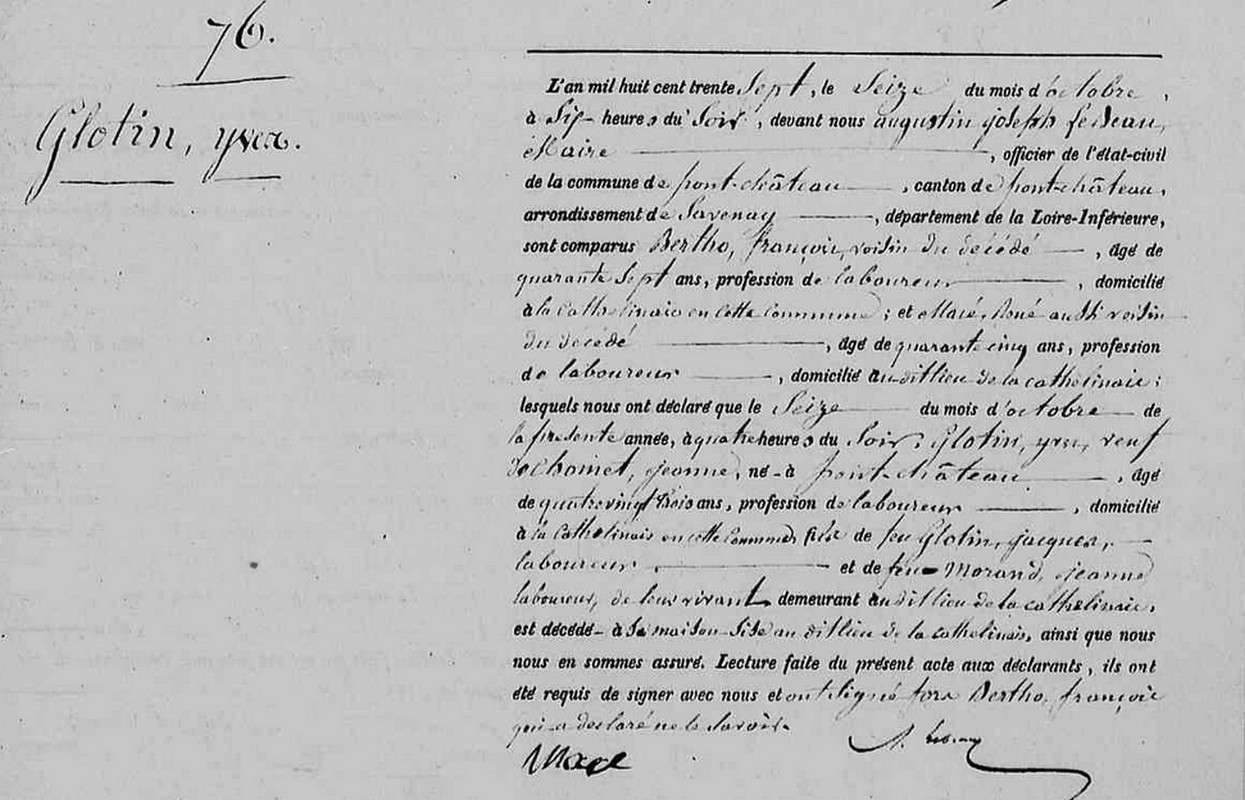 76.
Glotin, yves.
L'an mil huit cent trente Sept, le Seize du mois d'octobre,
à Six heures du Soir, devant nous augustin joseph
Maire, officier de l'état-civil
de la commune de pont-château, canton de pont-château,
arrondissement de Savenay, département de la Loire-Inférieure,
sont comparus Bertho, françois, voisin du décédé, âgé de
quarante Sept ans, profession de laboureur, domicilié
à la Cathelinais en cette Commune; et Macé, René aussi voisin
du décédé, âgé de quarante cinq ans, profession
de laboureur, domicilié audit lieu de la cathelinais;
lesquels nous ont déclaré que le Seize du mois d'octobre de
la présente année, à quatre heures du Soir, Glotin, yves, veuf
de homet, jeanne, né à pont-château, âgé
de quatre vingt trois ans, profession de laboureur, domicilié
à la Cathelinais en cette Commune, fils de feu Glotin, jacques,
laboureur, et de feue Morand, jeanne
laboureurs, de leur vivant demeurant audit lieu de la cathelinais,
est décédé à sa maison sise audit lieu de la cathelinais, ainsi que nous
nous en sommes assuré. Lecture faite du présent acte aux déclarants, ils ont
été requis de signer avec nous et ont signé fors Bertho, françois
qui a déclaré ne le Savoir.
Macé